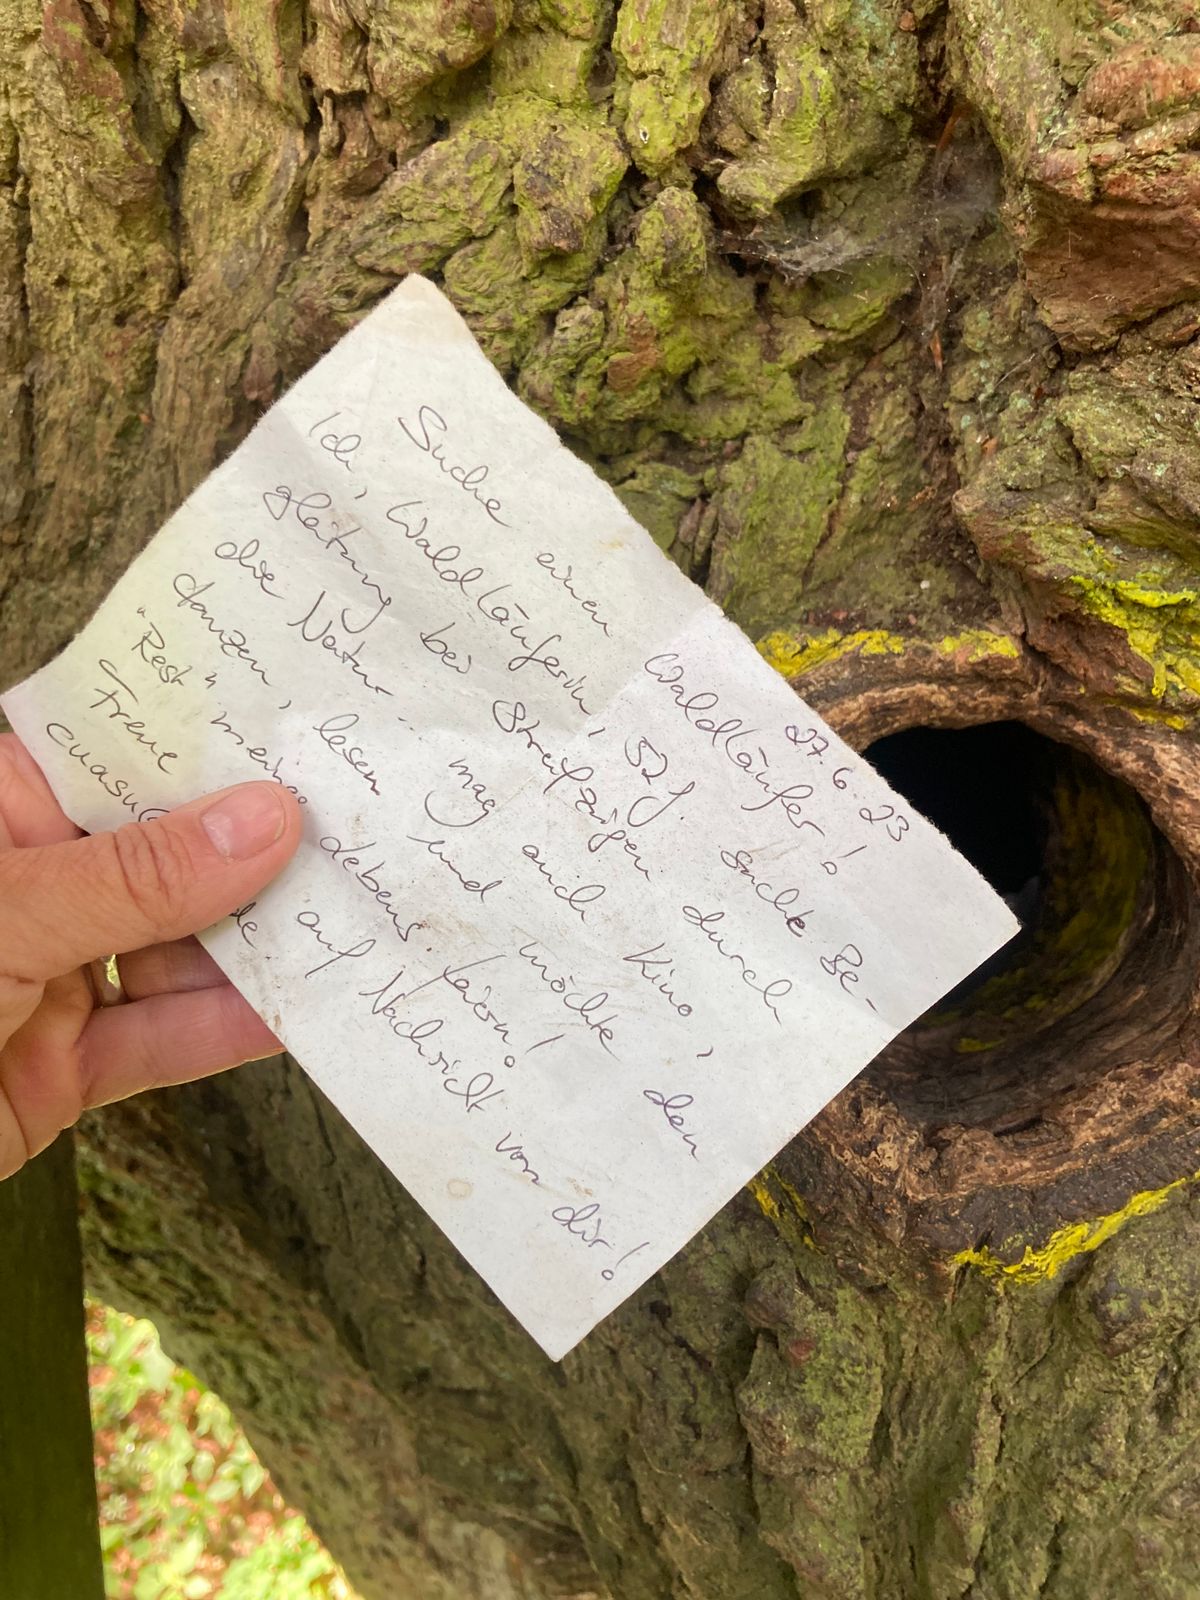 27.6.23
Suche einen Waldläufer!
Ich, Waldläuferin, 52 J. suche Be-
gleitung bei Streifzügen durch
die Natur - mag auch Kino,
tanzen, lesen und möchte den
"Rest" meines Lebens feiern!
Freue auf Nachricht von dir!